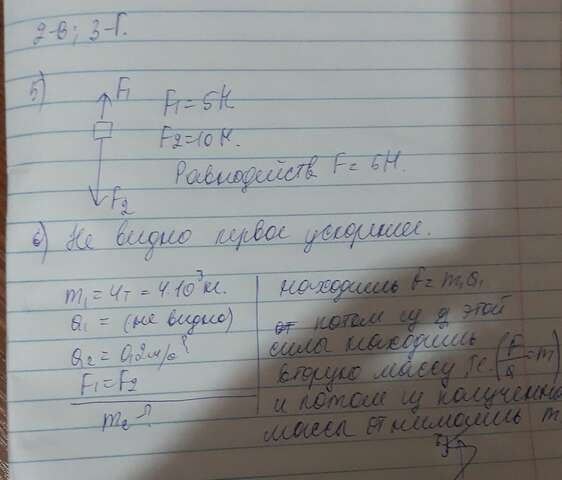 2-в; 3-Г.
5)
F1
F1=5Н
F2=10Н.
F2
Равнодейств F= 5Н.
6) Не видно первое ускорение.
m1=4т=4·10³кг.
a1= (не видно)
a2= 0,2м/с²
F1=F2
m2-?
находишь F=m1a1
потом из этой
силы находишь
вторую массу те.(F/a=m)
и потом из полученно
массы отнимаешь m